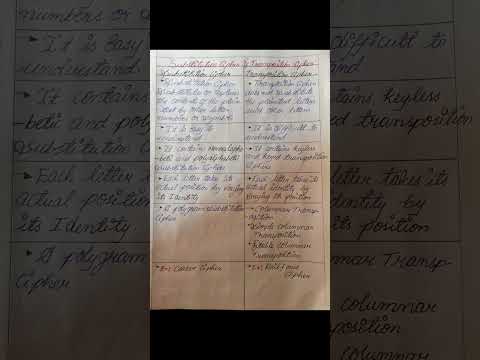 Substitution Cipher Vs Transposition Cipher
Substitution Cipher
• Substitution Cipher
substitutes or replaces
the contents of the plain
text by other letters
numbers or
• It is easy to
understand
• It contains
-betic and polyalphabetic
substitution cipher
• Each letter take its
actual position by varying
its Identity
• Is polygram substitution
Cipher
• Ex: Caesar Cipher
Transposition Cipher
• Transposition Cipher
does not substitute
the plaintext letter
with other letters
• It is difficult to
understand
• It contains keyless
and keyed transposition
Cipher
• Each letter takes its
actual identity by
varying its position
• Columnar Transp-
osition
• Double columnar
transposition
• Ex: Rail fence
Cipher
numbers or
• It is easy
understand
• It contains
-betic and poly
substitution c
• Each letter
actual position
its Identity
• Is polygram
Cipher
difficult to
and
tains, keyless
ed transposition
tter takes its
identity by
its position
nar Transp-
columnar
position
columnar